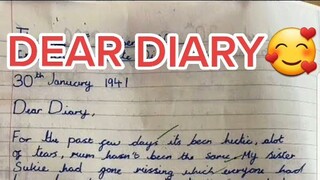 DEAR DIARY🥰
30th January 1941
Dear Diary,
For the past few days its been hectic, alot
of tears, mum hasn't been the same. My sister
Sukie had gone missing which everyone had